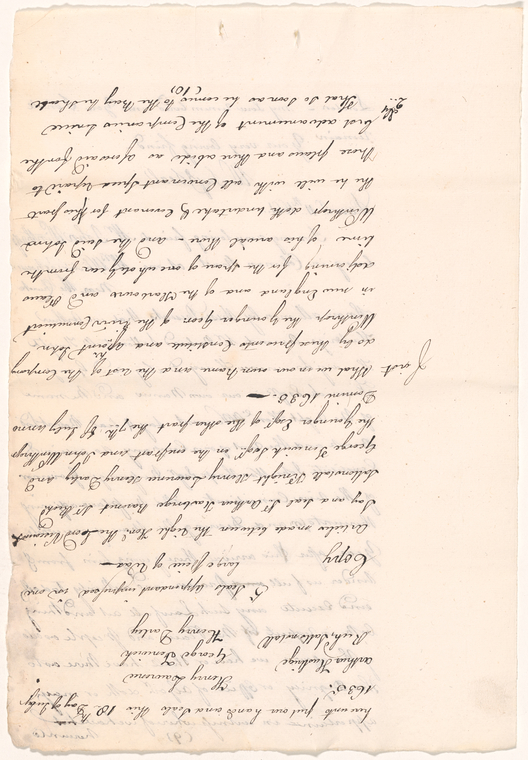 (9)
hereunto
hereunto put our hands and Seals this 18th Day of July
1635.
Arthur Haslrige
Rich. Saltonstall
Henry Lawrence
George Fenwick
Henry Darley
5 Seals appendant impressed in one
large piece of Wax
Copy
Articles made between the right Honble the Lord Viscount
Say and Seal Sr. Arthur Haslerige baronet Sr. Richd.
Saltonstall Knight Henry Lawrence Henry Darley and
George Fenwick Esqrs. on the one part and John Winthrop
the Younger Esqr. of the other part the 7th of July anno
Domini 1635.
First That we in our own name and the rest of the Company
do by these presents Constitute and appoint John
Winthrop the Younger Govr. of the River Connecticut
in new England and of the Harbour and Places
adjoining for the space of one whole year from the
time of his arrival there — and the said John
Winthrop doth undertake & Covenant for his part
the he will with all Convenient speed repair to
those places and there abide as aforesaid for the
best advancement of the Companies service
2dly That so soon as he comes to the Bay he shall
(10)